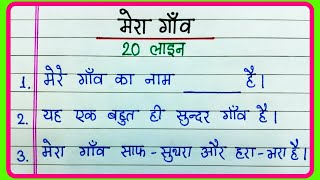 मेरा गाँव
20 लाइन
1. मेरे गाँव का नाम ________ है।
2. यह एक बहुत ही सुन्दर गाँव है।
3. मेरा गाँव साफ-सुथरा और हरा-भरा है।